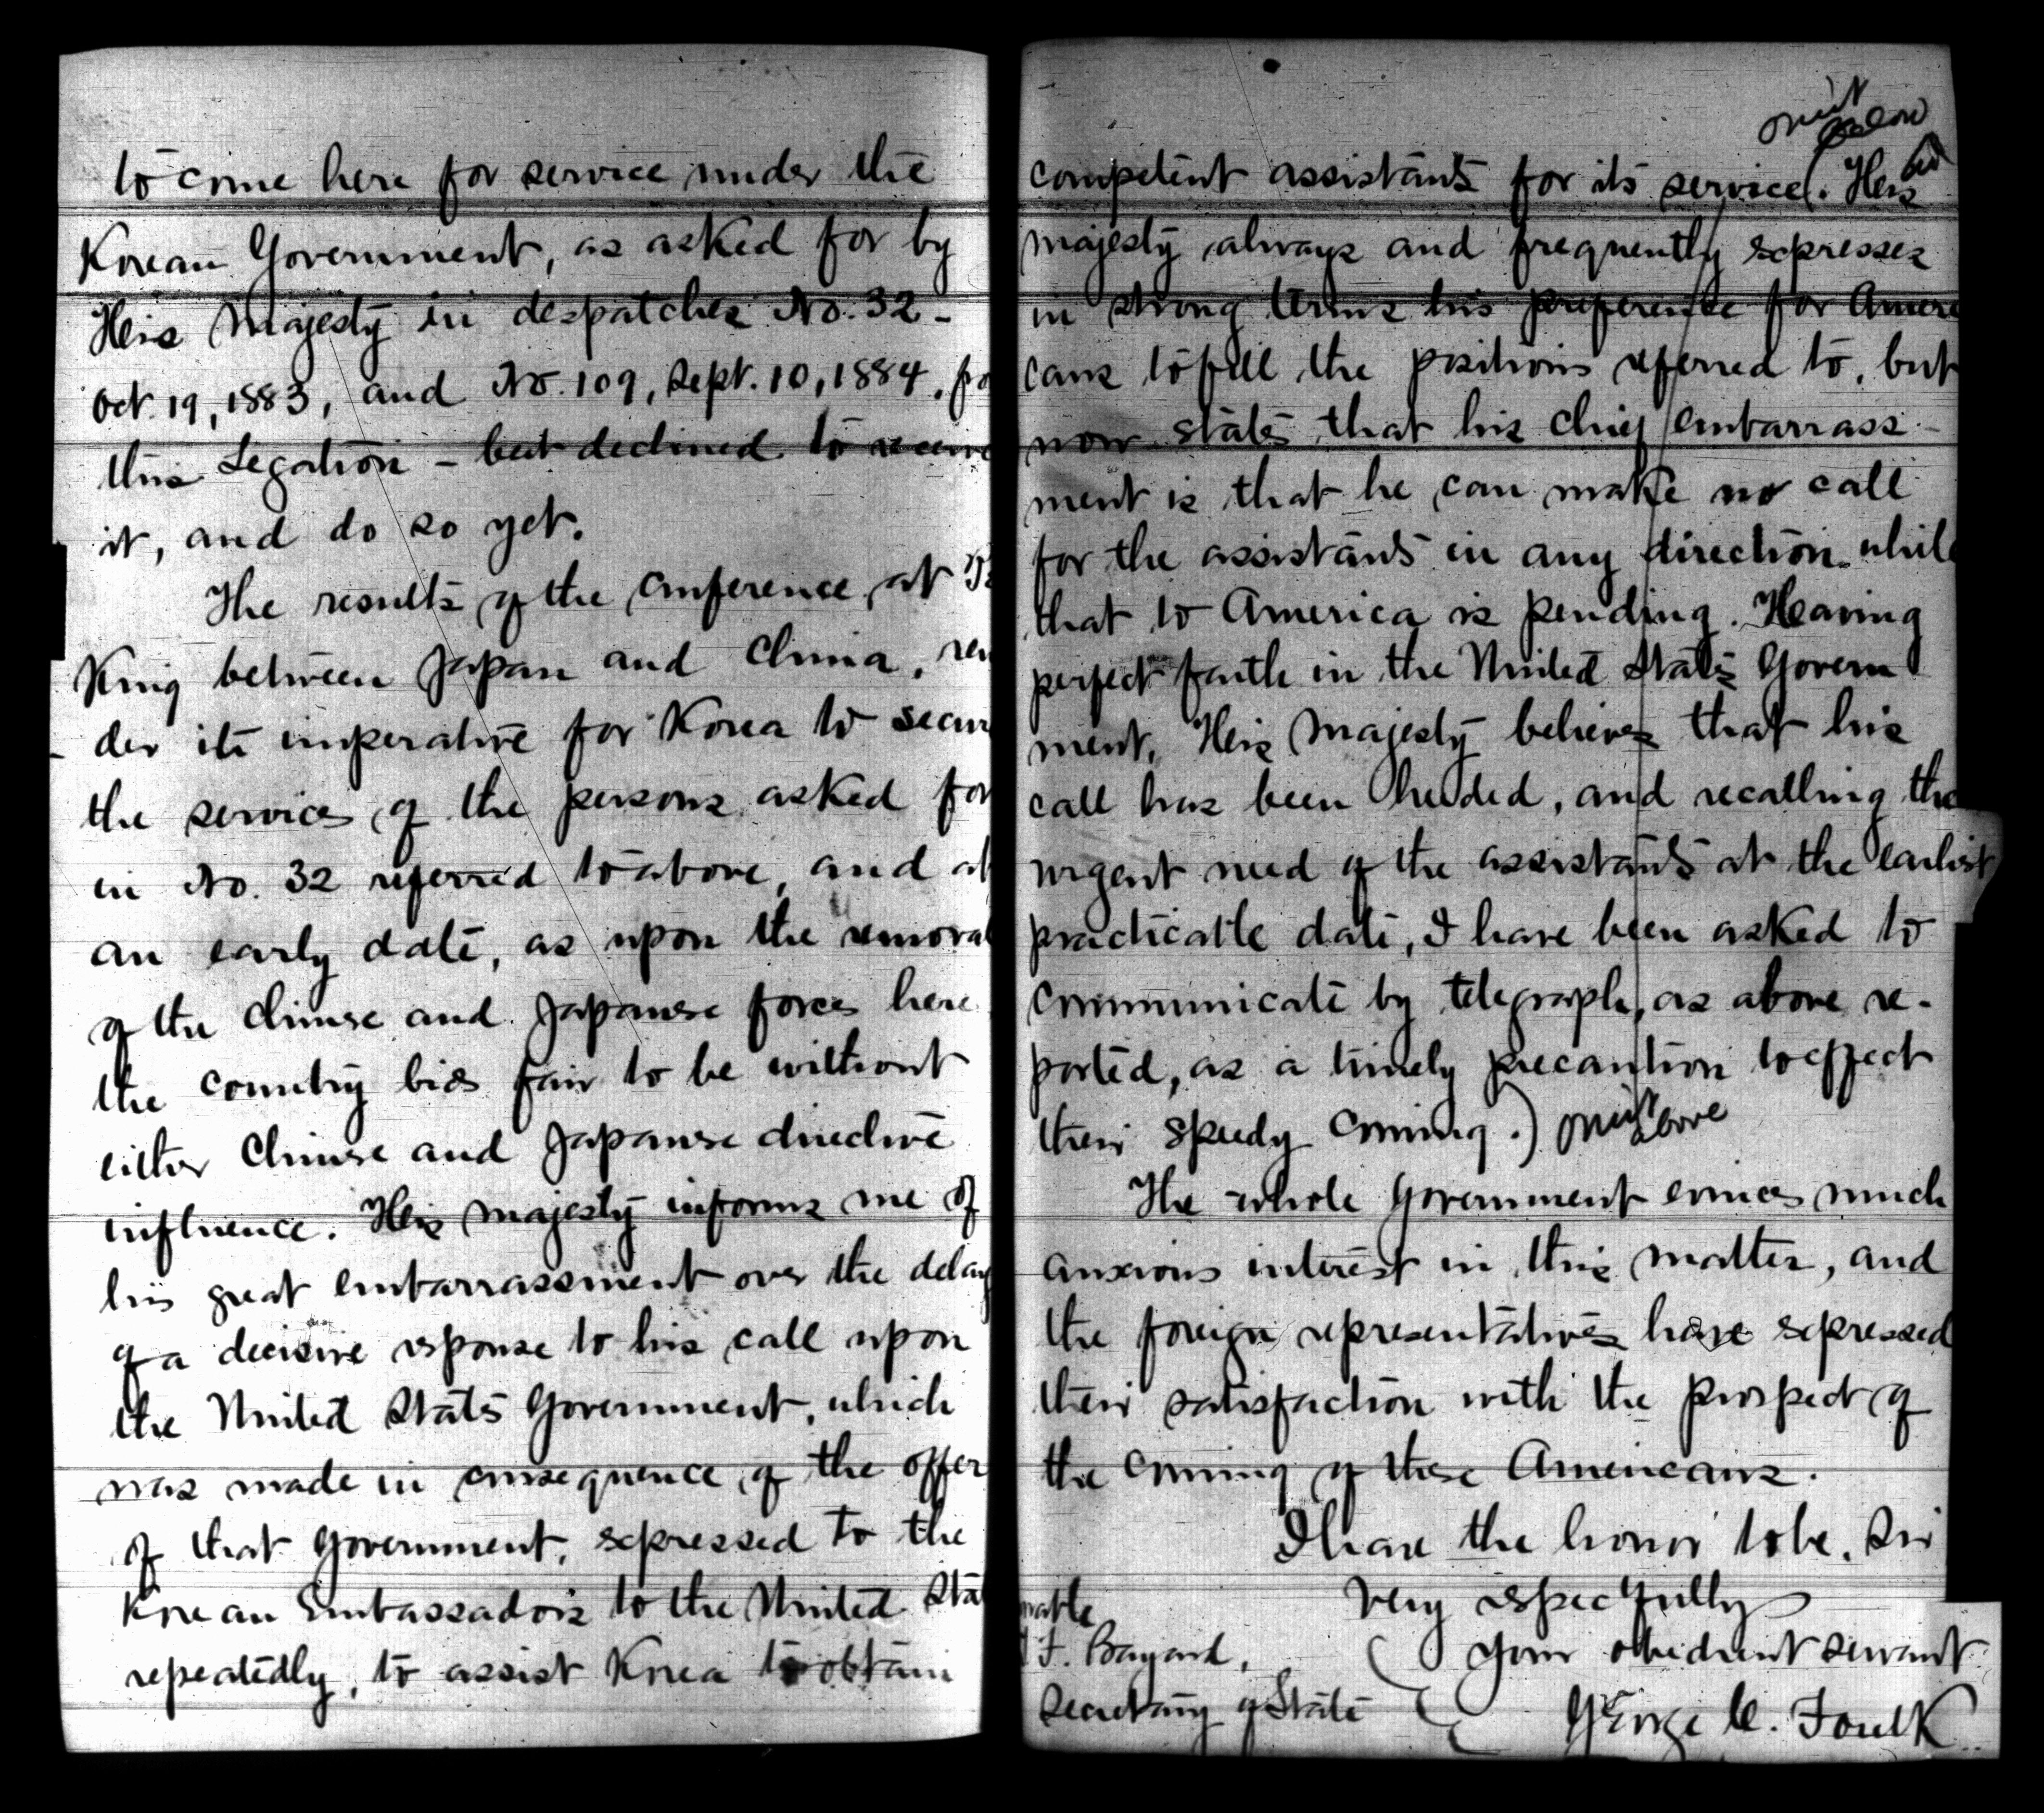 to come here for service under the
Korean Government, as asked for by
His Majesty in despatches No. 32 -
Oct. 19, 1883, and No. 109, Sept. 10, 1884, fro
this Legation - but declined to receive
it, and do so yet.
The results of the conference at Pe
King between Japan and China, ren
der its imperative for Korea to secur
the services of the persons asked for
in No. 32 referred to above, and at
an early date, as upon the removal
of the Chinese and Japanese forces here
the country bids fair to be without
either Chinese and Japanese directive
influence. His Majesty informs me of
his great embarrassment over the delay
of a decisive response to his call upon
the United States Government, which
was made in consequence of the offer
of that Government, expressed to the
Korean Embassadors to the United Sta
repeatedly, to assist Korea to obtain
omit
below
competent assistants for its service. (His
Majesty always and frequently expresses
in strong terms his preference for Ameri
cans to fill the positions referred to, but
now states that his chief embarrass-
ment is that he can make no call
for the assistants in any direction while
that to America is pending. Having
perfect faith in the United States Govern
ment, His Majesty believes that his
call has been heeded, and recalling the
urgent need of the assistants at the earliest
practicable date, I have been asked to
communicate by telegraph, as above re-
ported, as a timely precaution to effect
their speedy coming.) omit above
The whole Government evinces much
anxious interest in this matter, and
the foreign representatives have expressed
their satisfaction with the prospect of
the coming of these Americans.
I have the honor to be, Sir
Very respectfully
Your obedient servant
George C. Foulk
rable
F. Bayard,
Secretary of State